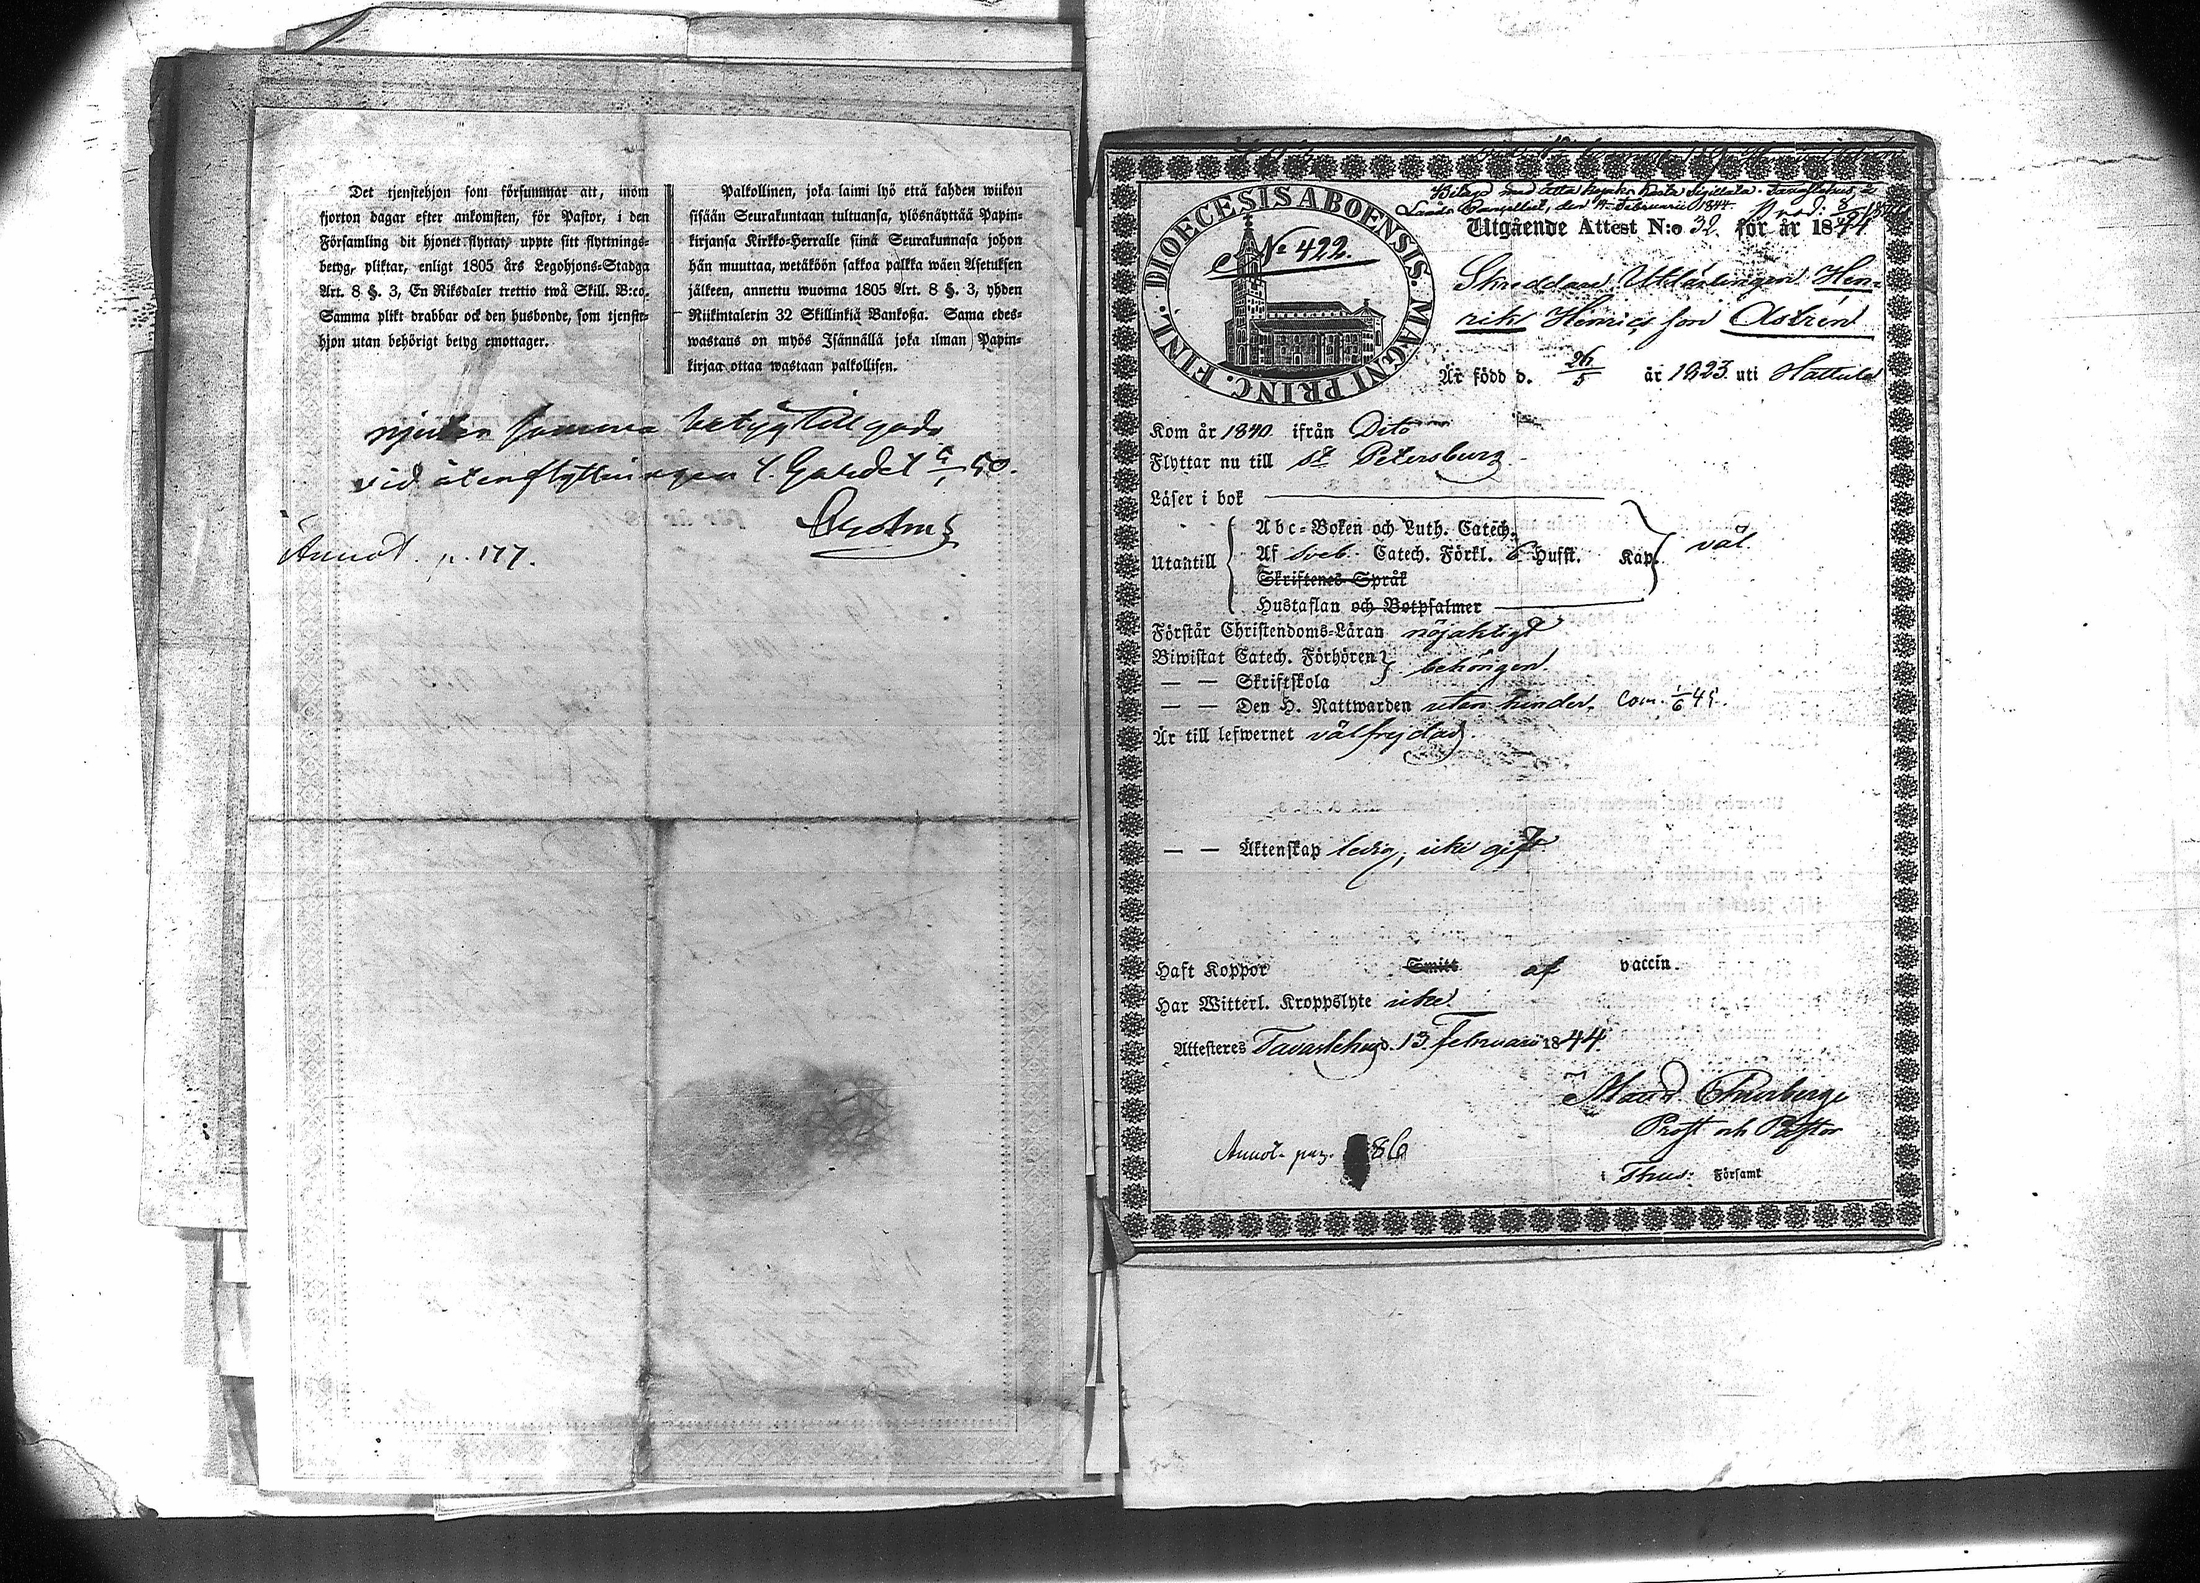 Det tjenstehjon som försummar att, inom
fjorton dagar efter ankomsten, för Pastor, i den
Församling dit hjonet flyttat, uppte sitt flyttnings-
betyg, pliktar, enligt 1805 års Legohjons-Stadga
Art. 8 §. 3, En Riksdaler trettio twå Skill. B:co.
Samma plikt drabbar ock den husbonde, som tjenste-
hjon utan behörigt betyg emottager.
Palkollinen, joka laimi lyö että kahden wiikon
sisään Seurakuntaan tultuansa, ylösnäyttää Papin-
kirjansa Kirkko-Herralle siinä Seurakunnasa johon
hän muuttaa, wetäköön sakkoa palkka wäen Asetuksen
jälkeen, annettu wuonna 1805 Art. 8 §. 3, yhden
Riikintalerin 32 Skillinkiä Bankoßa. Sama edes-
wastaus on myös Isännällä joka ilman Papin-
kirjaa ottaa wastaan palkollisen.
njuter samma betyg till godo
vid återflyttningen t. Gardet 50.
Annot. p. 177.
DIOECESIS ABOENSIS. MAGNI PRINC. FINL.
No 422.
Februarii 1844.
Utgående Attest N:o 32 för år 1844
Skräddare Utlärlingen Hen-
rik Henricsson Astrén
Är född d. 26/5 år 1823 uti Hattula
Kom år 1840 ifrån Dito
Flyttar nu till St Petersburg
Läser i bok
Abc-Boken och Luth. Catech.
Utantill Af Sveb. Catech. Förkl. 6 Husst. Kap. väl
Skriftenes Språk
Hustaflan och Botpsalmer
Förstår Christendoms-Läran nöjaktigt
Biwistat Catech. Förhören behörigen
— — Skriftskola
— — Den H. Nattwarden utan hinder. Com. 1/6 45.
Är till lefwernet välfrejdad
— — Äktenskap ledig, icke gift
Haft Koppor Smitt af vaccin.
Har Witterl. Kroppslyte icke
Attesteras Tavastehus d. 13 Februari 1844
Prost och Pastor
i Thus. Församl
Annot. pag. 86